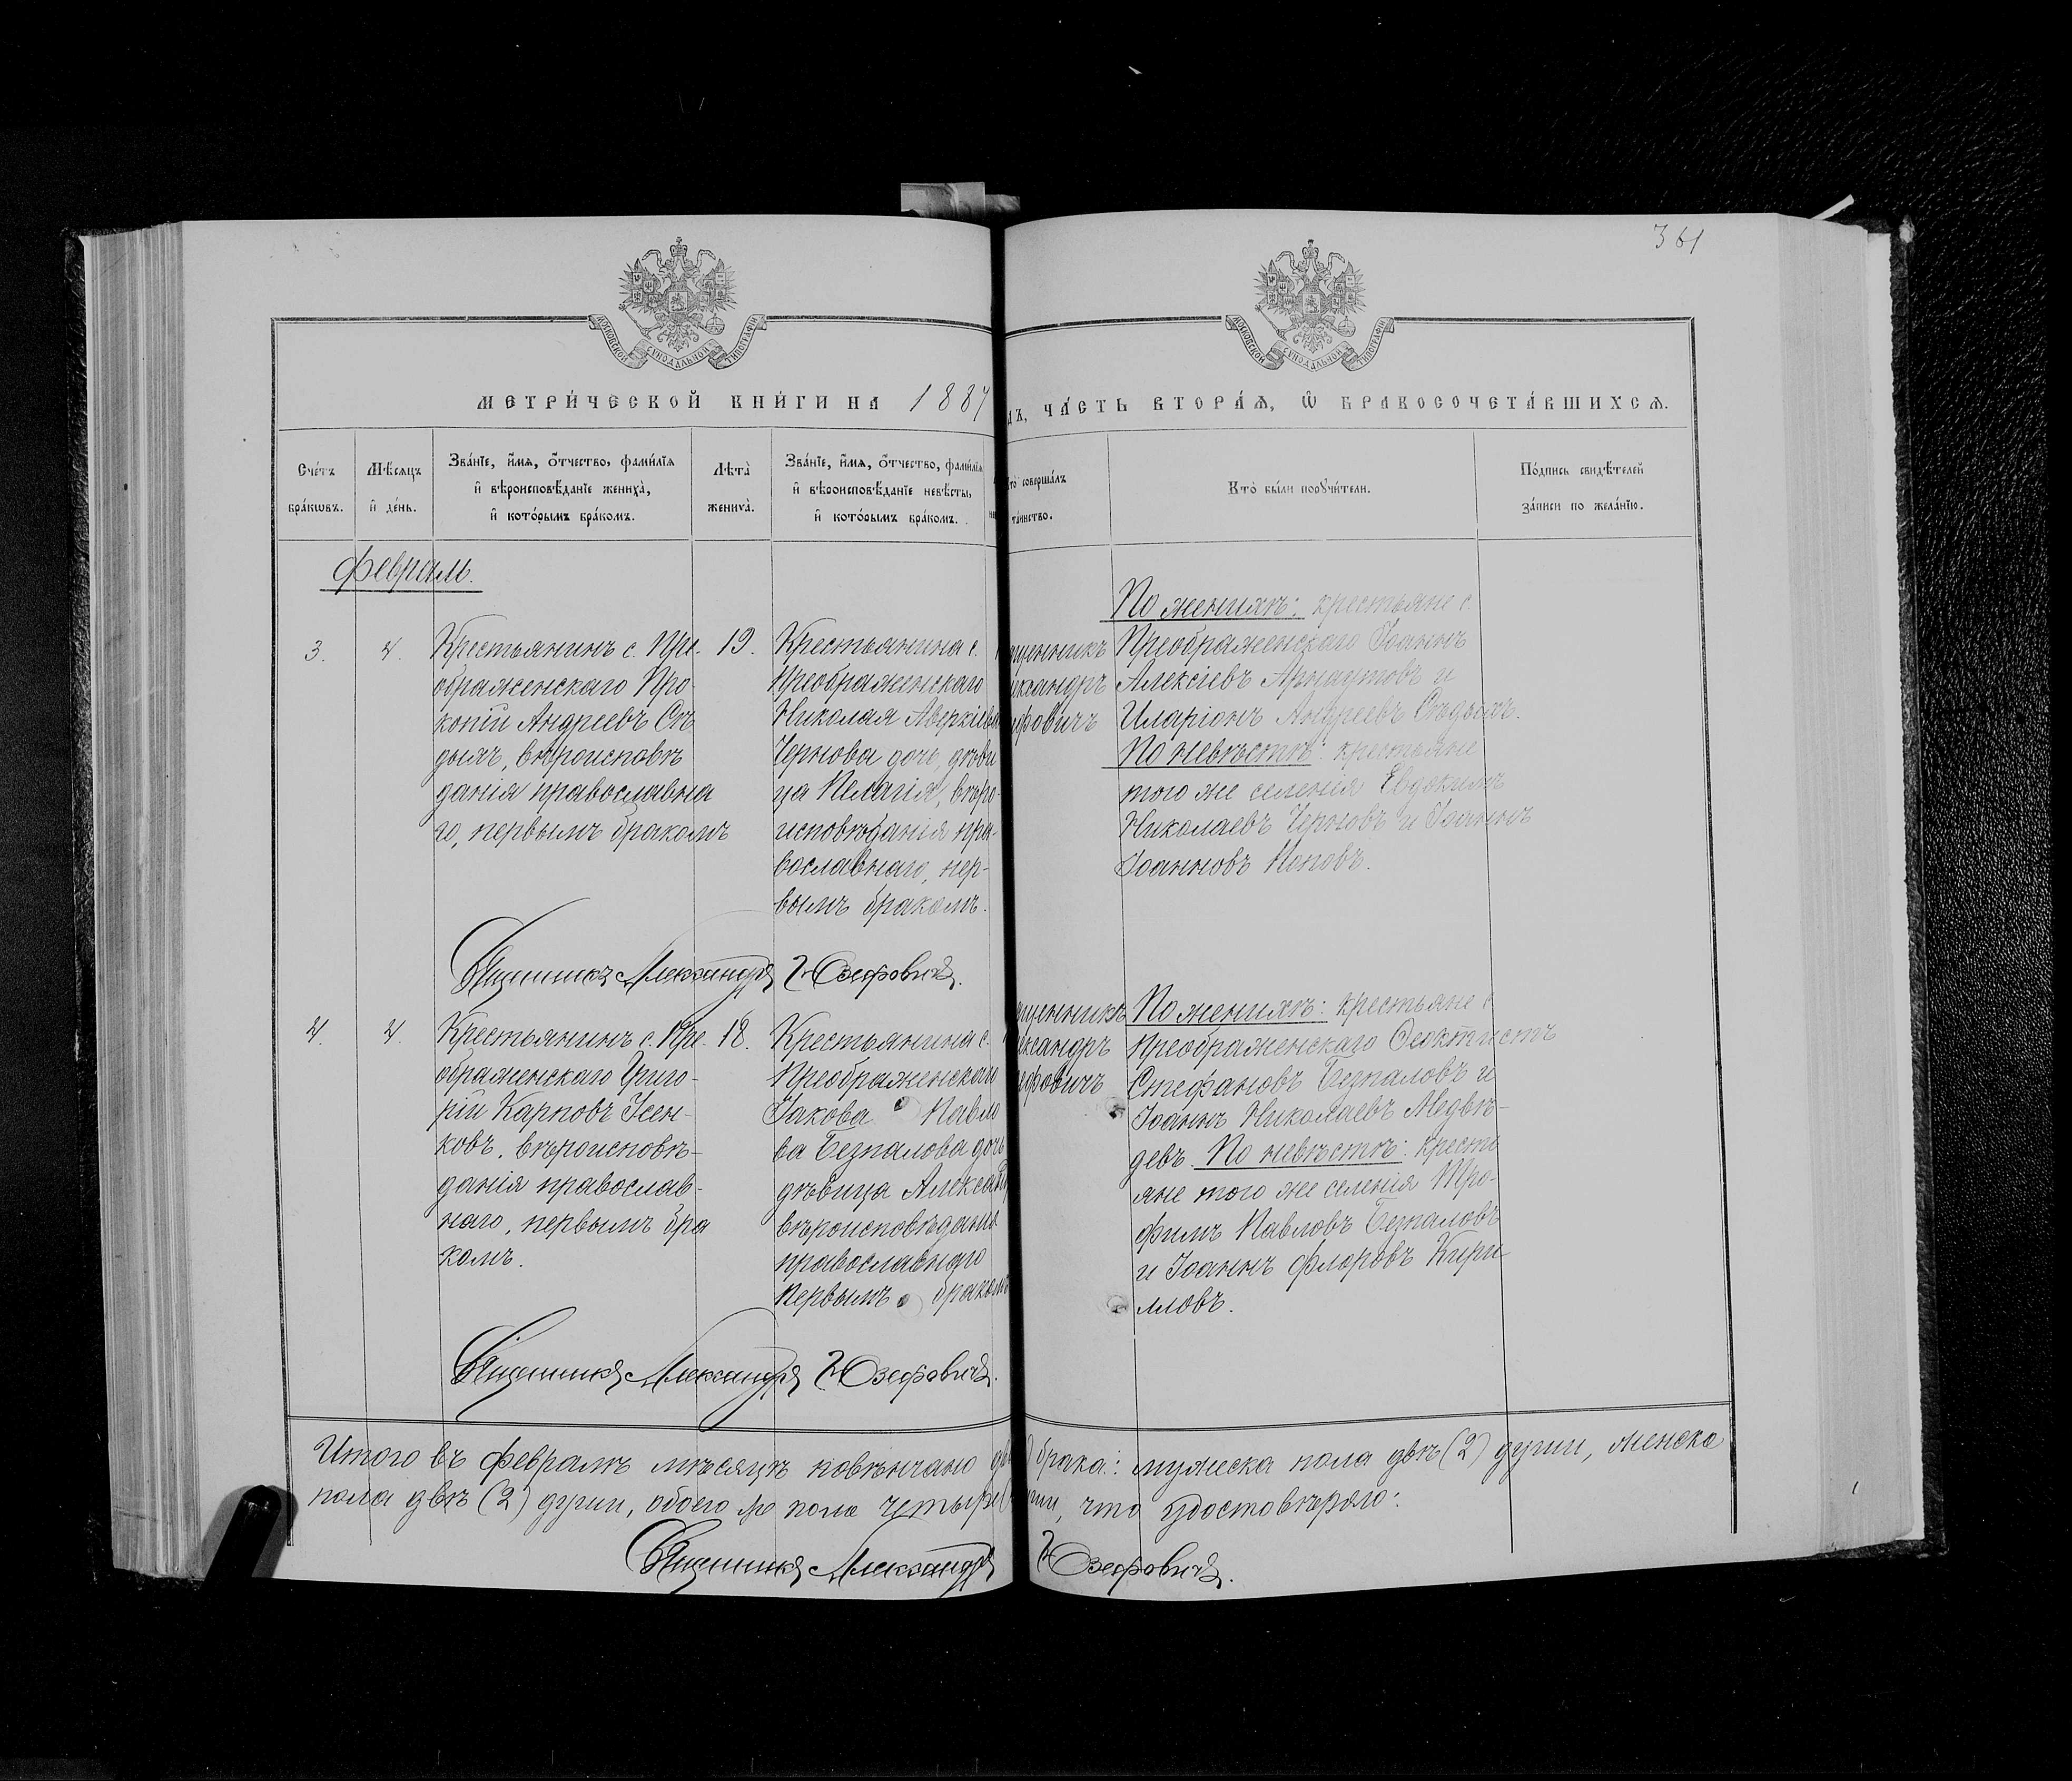 361
МОСКОВСКОЙ СѴНОДАЛЬНОЙ ТИПОГРАФІИ
МОСКОВСКОЙ СѴНОДАЛЬНОЙ ТИПОГРАФІИ
МЕТРИ́ЧЕСКОЙ КНИ́ГИ НА 1887
ДЪ, ЧА́СТЬ ВТОРА́Ѧ, Ѽ БРАКОСОЧЕТА́ВШИХСѦ.
Сче́тъ бра́кѡвъ.
Мѣ́сѧцъ и҆ де́нь.
Зва́нїе, и҆́мѧ, ѻ҆́тчество, фами́лїѧ
и҆ вѣроисповѣ́данїе жениха̀,
и҆ кото́рымъ бра́комъ.
Лѣта̀ жениха̀.
Зва́нїе, и҆́мѧ, ѻ҆́тчество, фами́лїѧ
и҆ вѣроисповѣ́данїе невѣ́сты,
и҆ кото́рымъ бра́комъ.
то̀ соверша́лъ
та́инство.
Кто̀ бы́ли порꙋчи́тели.
По́дпись свидѣ́телей
за́писи по жела́нїю.
Февраль.
3.
4.
Крестьянинъ с. Пре-
ображенскаго Про-
копій Андреевъ Сѣ
дыхъ, вѣроисповѣ
данія православна
го, первымъ бракомъ
19.
Крестьянина с.
Преображенскаго
Николая Аверкіева
Чернова дочь, дѣви
ца Пелагія, вѣро-
исповѣданія пра-
вославнаго, пер-
вымъ бракомъ.
щенникъ
ександръ
ефовичъ
По женихѣ: крестьяне с.
Преображенскаго Іоаннъ
Алексіевъ Арнаутовъ и
Иларіонъ Андреевъ Сѣдыхъ.
По невѣстѣ: крестьяне
того же селенія Евдокимъ
Николаевъ Черновъ и Іоаннъ
Іоанновъ Поповъ.
Священникъ Александръ Юзефовичъ.
4.
4.
Крестьянинъ с. Пре-
ображенскаго Григо-
рій Карповъ Усен-
ковъ, вѣроисповѣ-
данія православ-
наго, первымъ бра
комъ.
18.
Крестьянина с.
Преображенскаго
Іакова Павло
ва Безпалова дочь
дѣвица Александ
вѣроисповѣданія
православнаго
первымъ бракомъ
щенникъ
ександръ
ефовичъ
По женихѣ: крестьяне с.
Преображенскаго Феоктистъ
Стефановъ Безпаловъ и
Іоаннъ Николаевъ Медвѣ-
девъ. По невѣстѣ: кресть
яне того же селенія Тро-
фимъ Павловъ Безпаловъ
и Іоаннъ Флоровъ Кири
лловъ.
Священникъ Александръ Юзефовичъ.
Итого въ февралѣ мѣсяцѣ повѣнчано два брака: мужеска пола двѣ (2) души, женска
пола двѣ (2) души, обоего же пола четыре души, что удостовѣряю:
Священникъ Александръ Юзефовичъ.